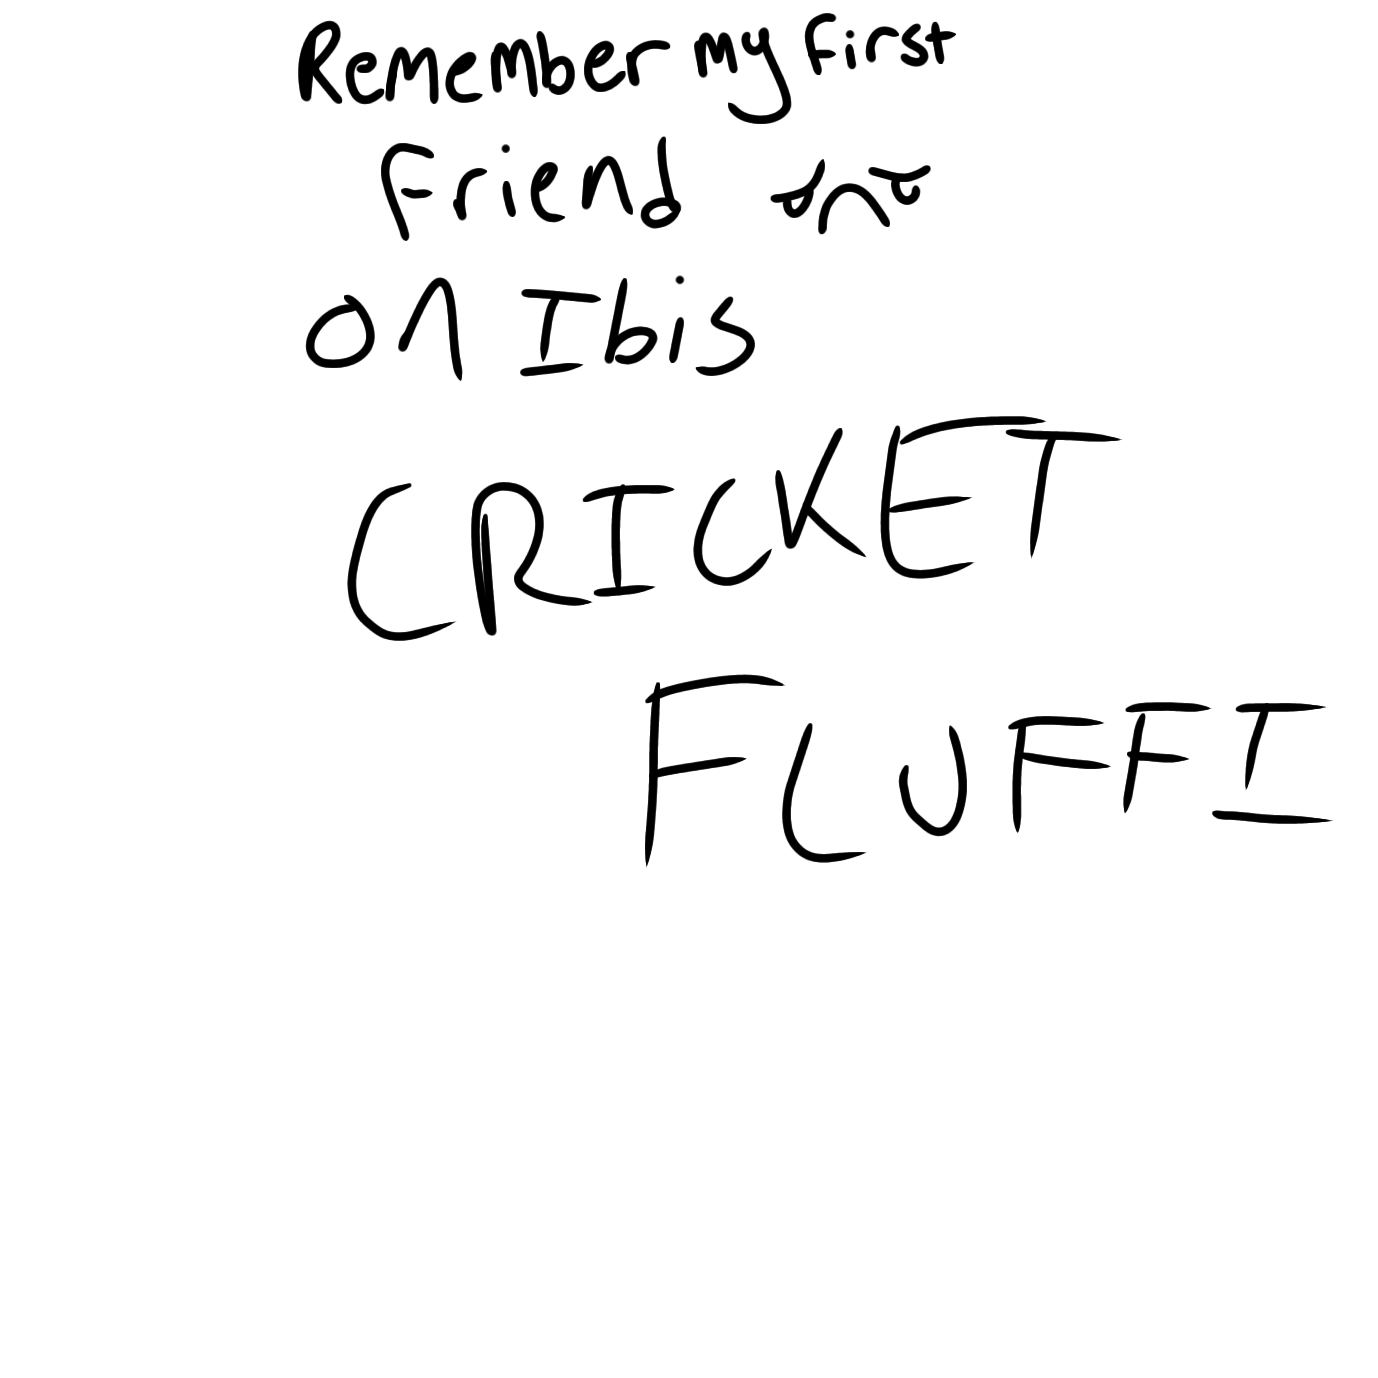 Remember my first
Friend
on Ibis
CRICKET
FLUFFI